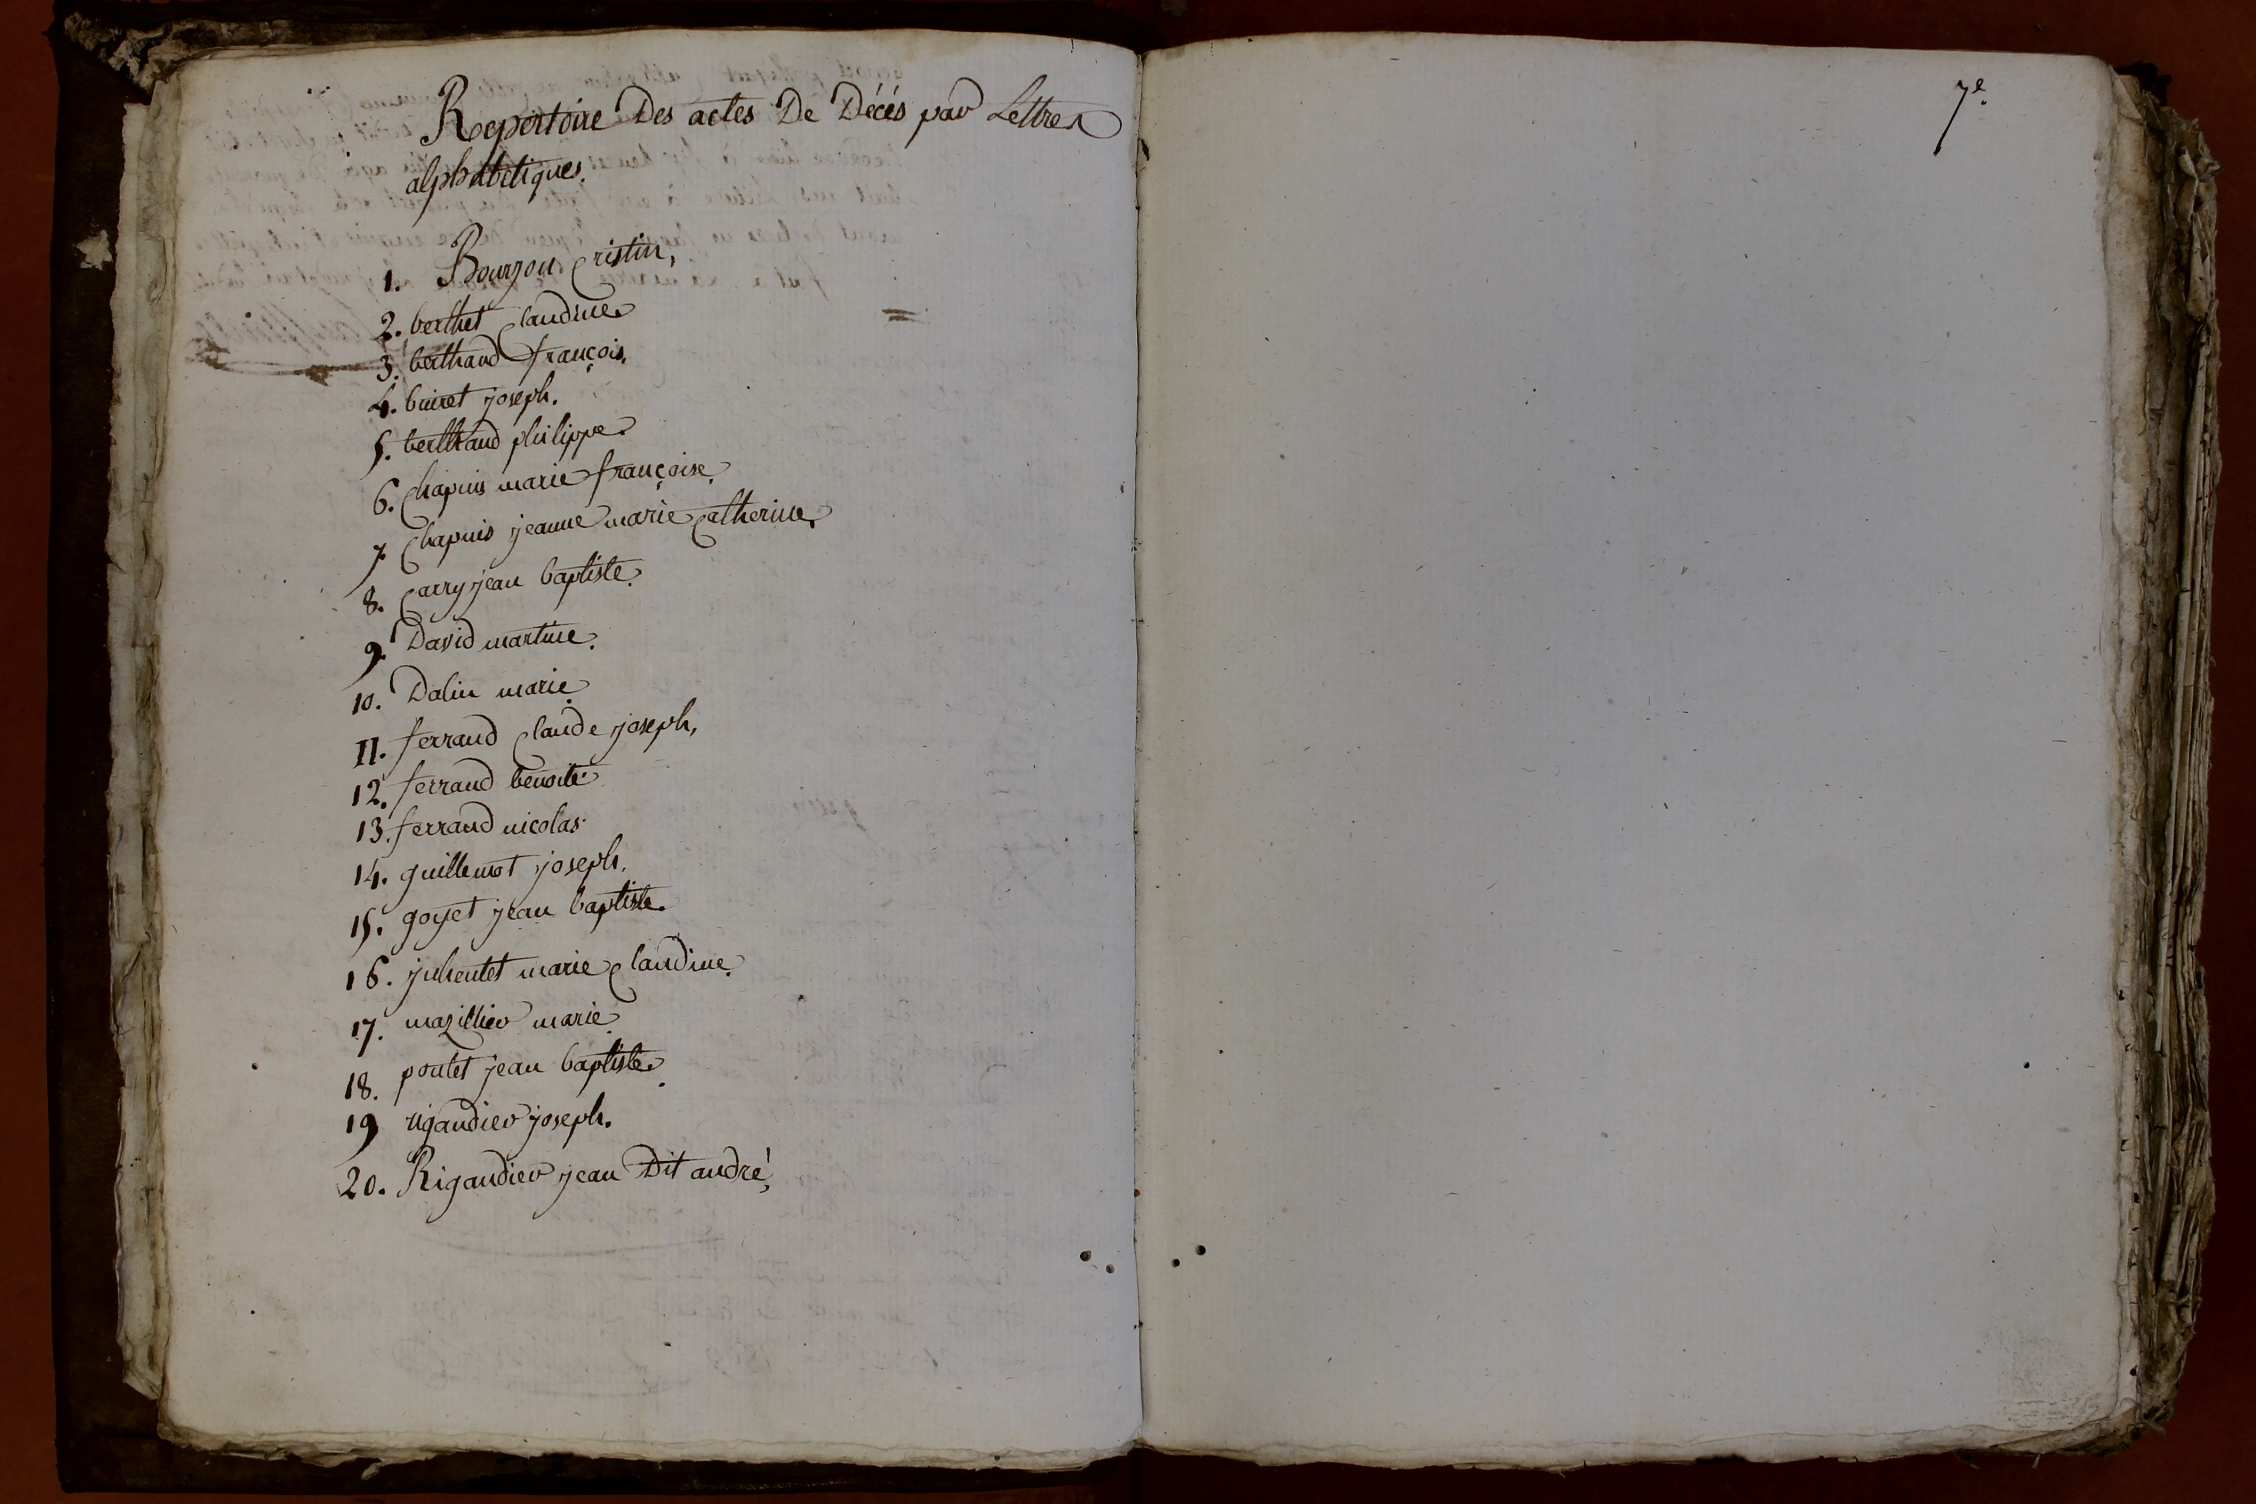 Repertoire Des actes De Décés par Lettres
alphabetiques.
1. Bourzou Cristin,
2. berthet Claudine
3. berthaud françois.
4. buiret joseph.
5. berthaud philippe.
6. Chapuis marie françoise.
7. Chapuis jeanne marie Catherine.
8. Carry jean baptiste.
9. David martine.
10. Dalin marie.
11. ferraud Claude joseph,
12. ferraud benoite.
13. ferraud nicolas.
14. guillemot joseph.
15. goyet jean baptiste.
16. julientet marie Claudine.
17. mazillier marie.
18. poulet jean baptiste.
19 rigaudier joseph.
20. Rigaudier jean Dit andré,
7e.